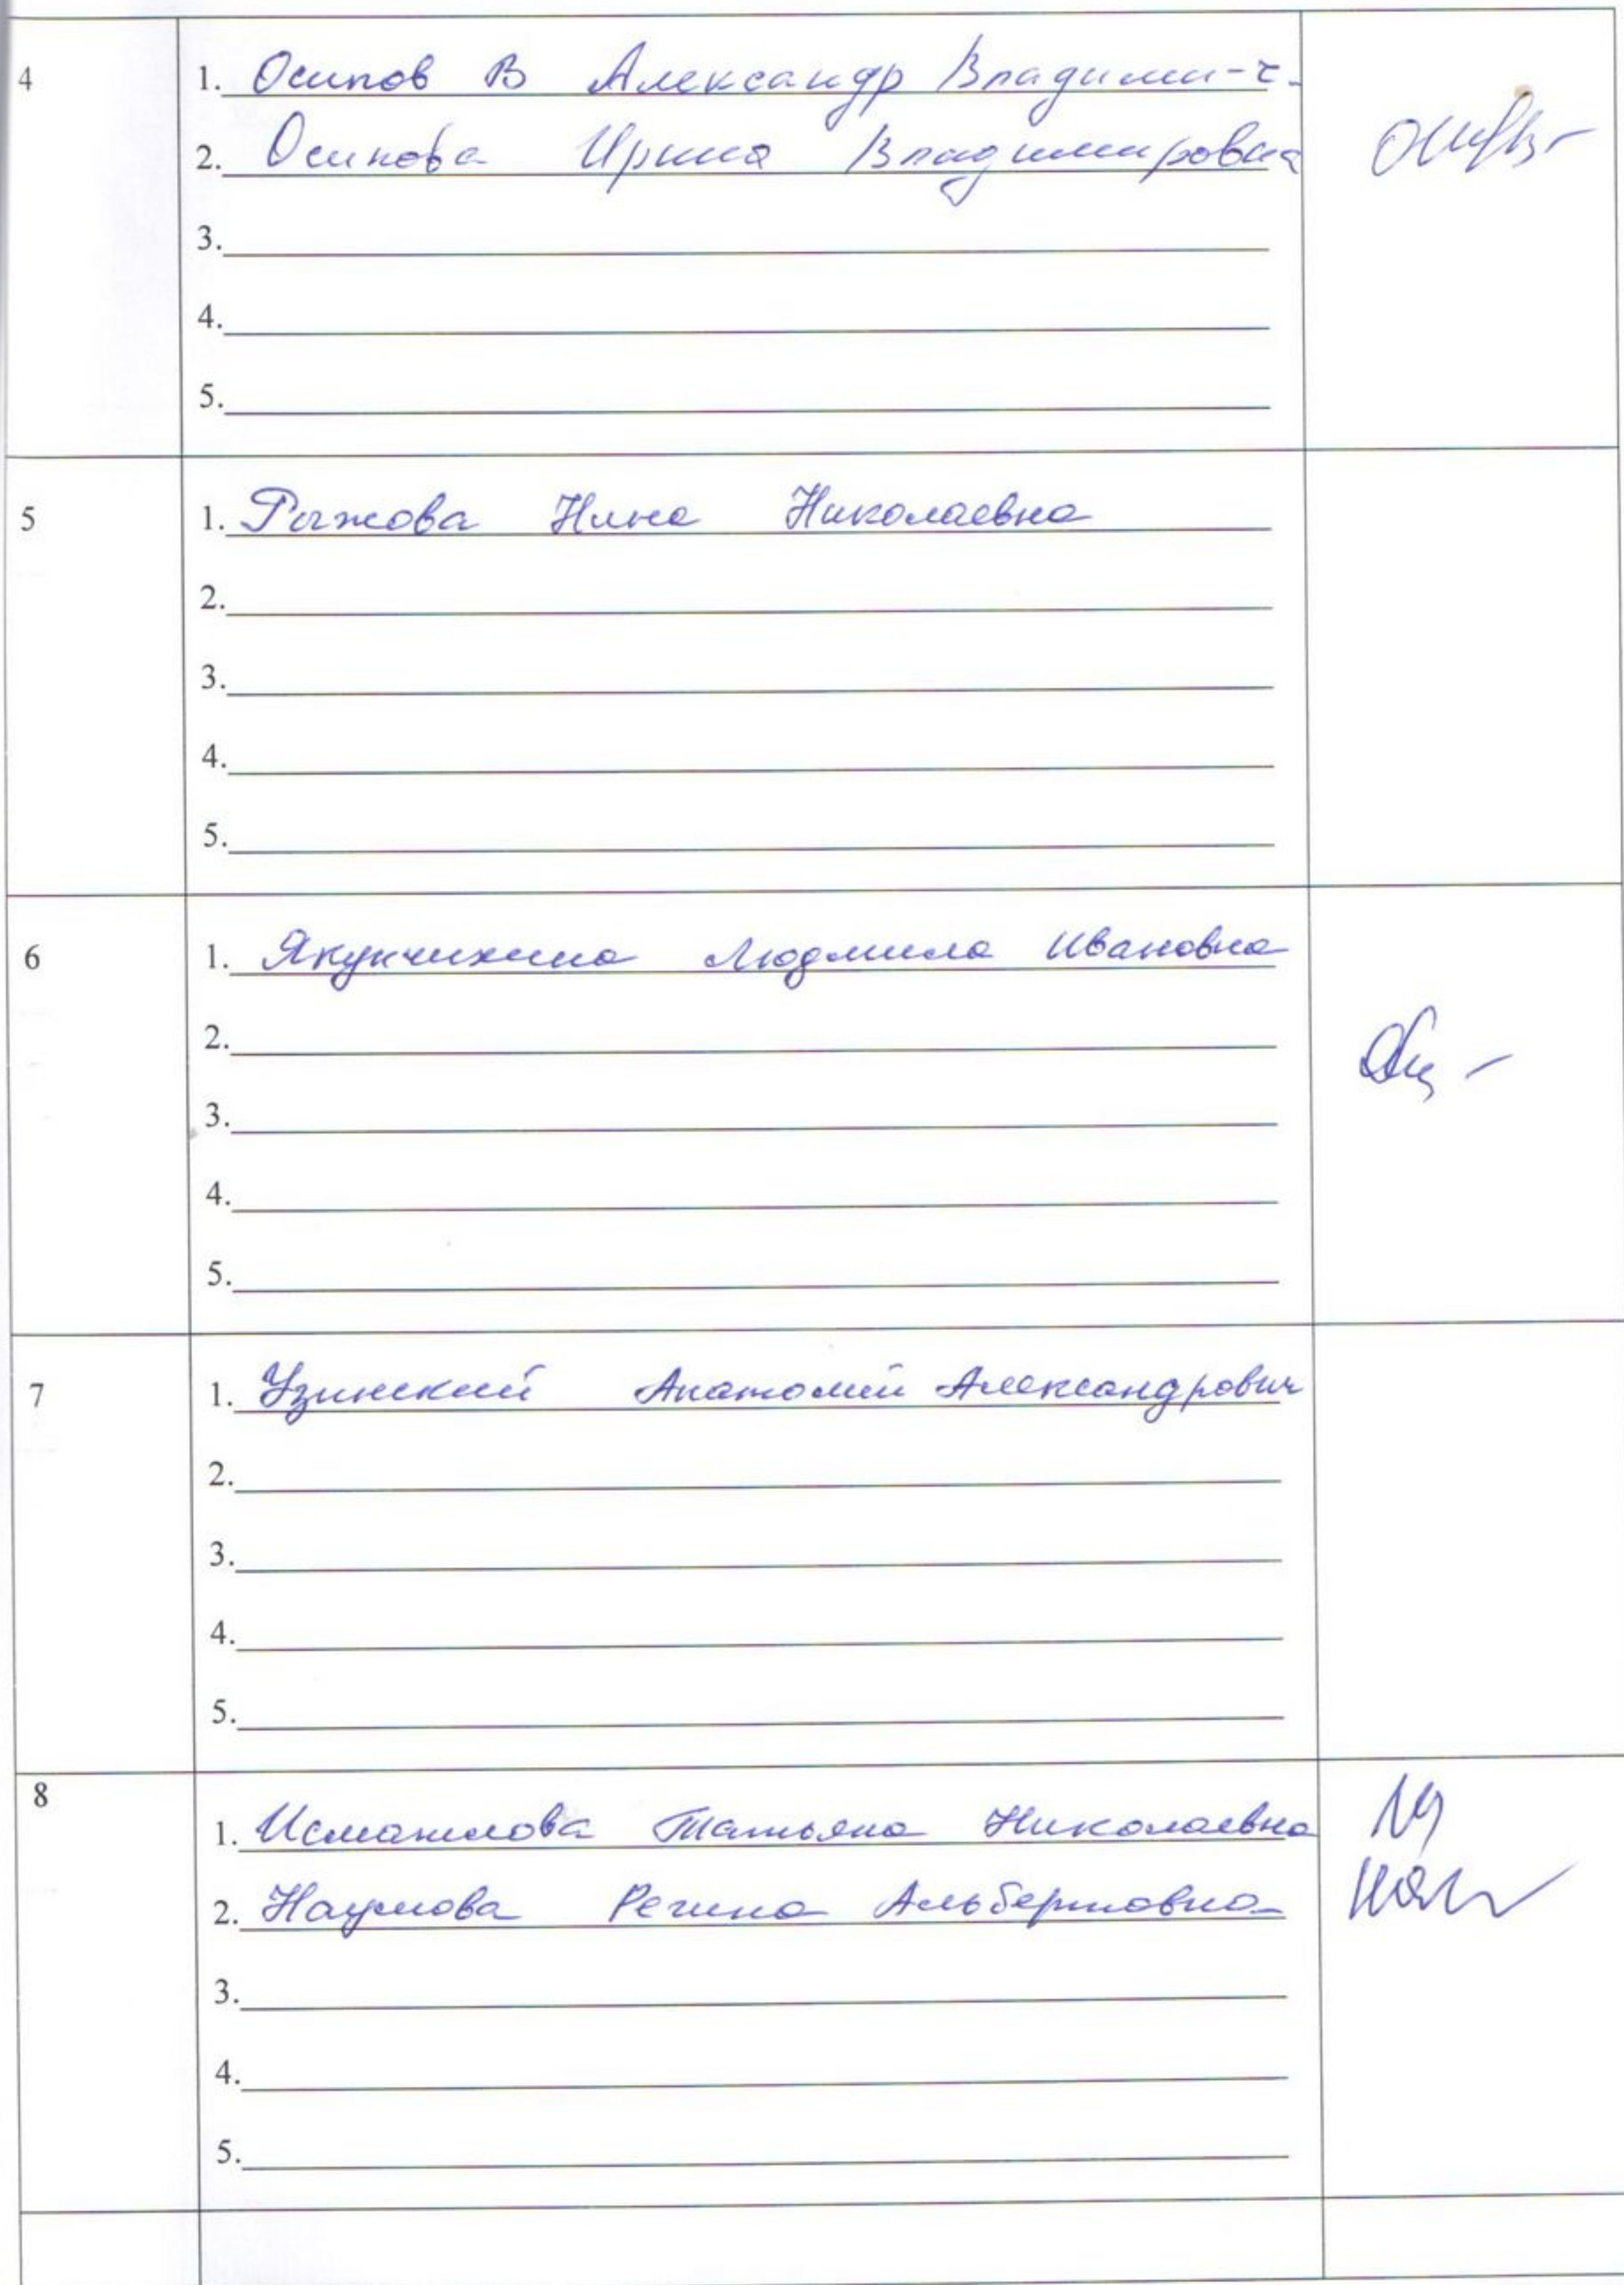 4
1. Осипов В Александр Владими-ч.
2. Осипова Ирина Владимировна
3.
4.
5.
5
1. Рыжова Нина Николаевна
2.
3.
4.
5.
6
1. Якунчихина Людмила Ивановна
2.
3.
4.
5.
7
1. Узинский Анатолий Александрович
2.
3.
4.
5.
8
1. Исмаилова Татьяна Николаевна
2. Наумова Регина Альбертовна
3.
4.
5.